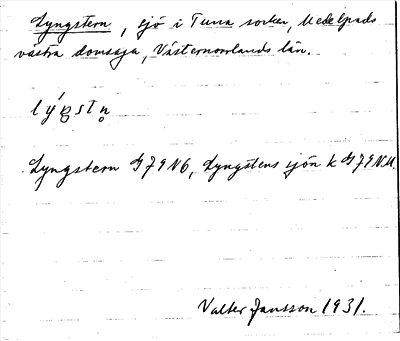 Lyngstern, sjö i Tuna socken, Medelpads
västra domsaga, Västernorrlands län.
lýŋstn̥
Lyngstern G79N6, Lyngstens sjön k G79NM.
Valter Jansson 1931.